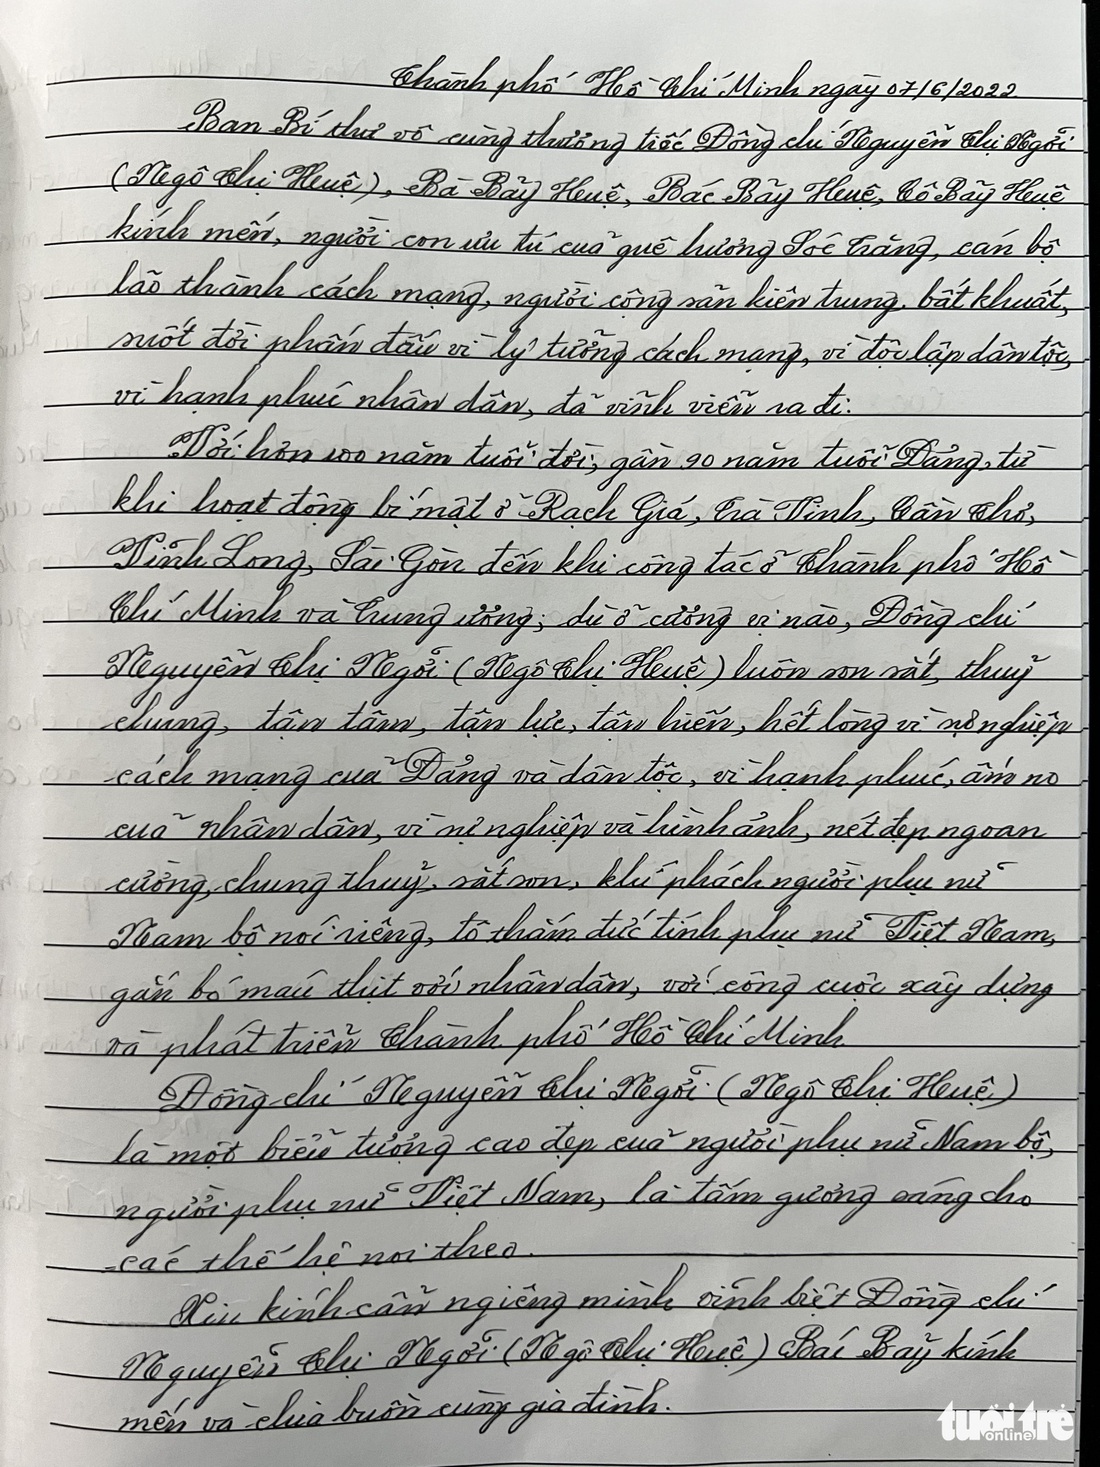 Thành phố Hồ Chí Minh ngày 07/6/2022
Ban Bí thư vô cùng thương tiếc Đồng chí Nguyễn Thị Ngởi
(Ngô Thị Huệ), Bà Bảy Huệ, Bác Bảy Huệ, Cô Bảy Huệ
kính mến, người con ưu tú của quê hương Sóc Trăng, cán bộ
lão thành cách mạng, người cộng sản kiên trung, bất khuất,
suốt đời phấn đấu vì lý tưởng cách mạng, vì độc lập dân tộc,
vì hạnh phúc nhân dân, đã vĩnh viễn ra đi.
Với hơn 100 năm tuổi đời, gần 90 năm tuổi Đảng, từ
khi hoạt động bí mật ở Rạch Giá, Trà Vinh, Cần Thơ,
Vĩnh Long, Sài Gòn đến khi công tác ở Thành phố Hồ
Chí Minh và Trung ương; dù ở cương vị nào, Đồng chí
Nguyễn Thị Ngởi (Ngô Thị Huệ) luôn son sắt, thuỷ
chung, tận tâm, tận lực, tận hiến, hết lòng vì sự nghiệp
cách mạng của Đảng và dân tộc, vì hạnh phúc, ấm no
của nhân dân, vì sự nghiệp và hình ảnh, nét đẹp ngoan
cường, chung thuỷ, sắt son, khí phách người phụ nữ
Nam bộ nói riêng, tô thắm đức tính phụ nữ Việt Nam,
gắn bó máu thịt với nhân dân, với công cuộc xây dựng
và phát triển Thành phố Hồ Chí Minh
Đồng chí Nguyễn Thị Ngởi (Ngô Thị Huệ)
là một biểu tượng cao đẹp của người phụ nữ Nam bộ,
người phụ nữ Việt Nam, là tấm gương sáng cho
các thế hệ noi theo.
Xin kính cẩn ngiêng mình vĩnh biệt Đồng chí
Nguyễn Thị Ngởi (Ngô Thị Huệ) Bác Bảy kính
mến và chia buồn cùng gia đình.
tuổi trẻ
online